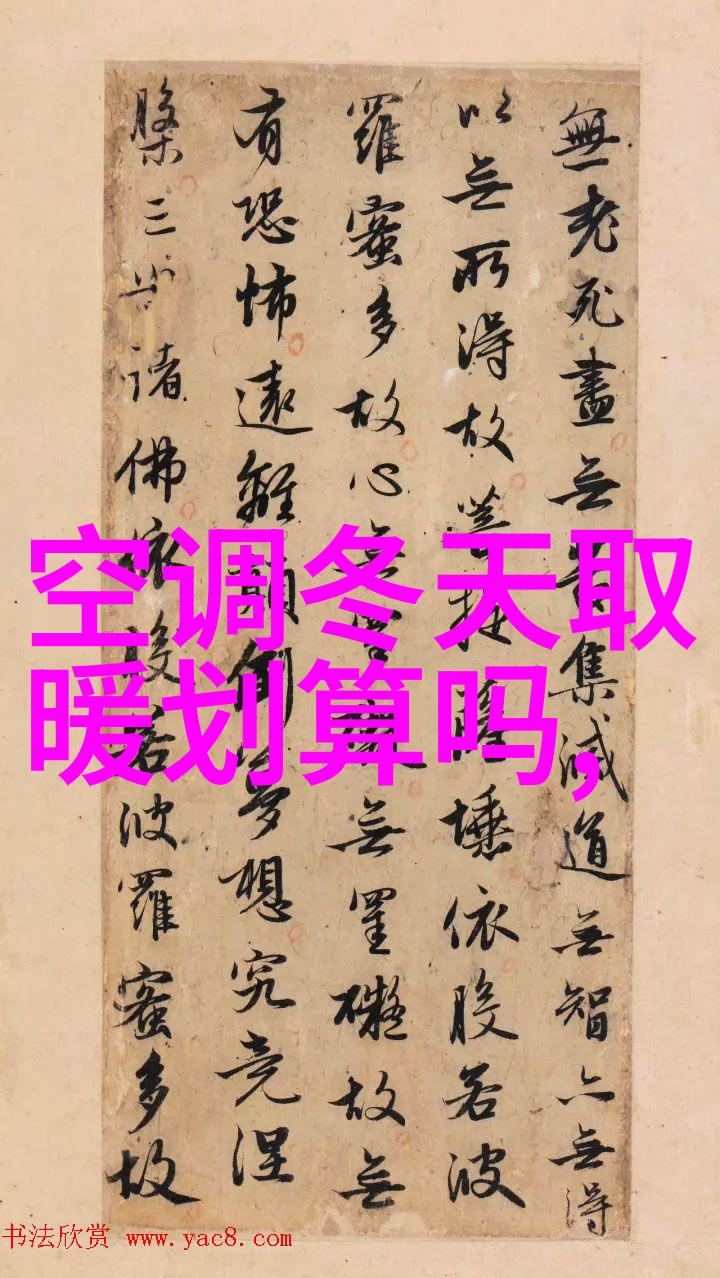 無老死盡無苦集滅道無智亦無得
以無所得故菩提薩埵依般若波
羅蜜多故心無罣礙無罣礙故無
有恐怖遠離顛倒夢想究竟涅
槃三世諸佛依般若波羅蜜多故
空调冬天取
暖划算吗,
书法欣赏 www.yac8.com